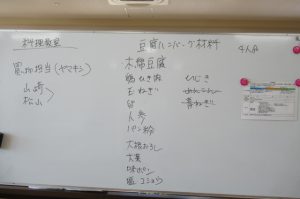 料理教室
買い物担当(ヤマキシ)
山崎
松山
豆腐ハンバーグ材料
4人分
木綿豆腐
鶏ひき肉
玉ねぎ
卵
人参
パン粉
大根おろし
大葉
味ポン
塩コショウ
ひじき
青ねぎ